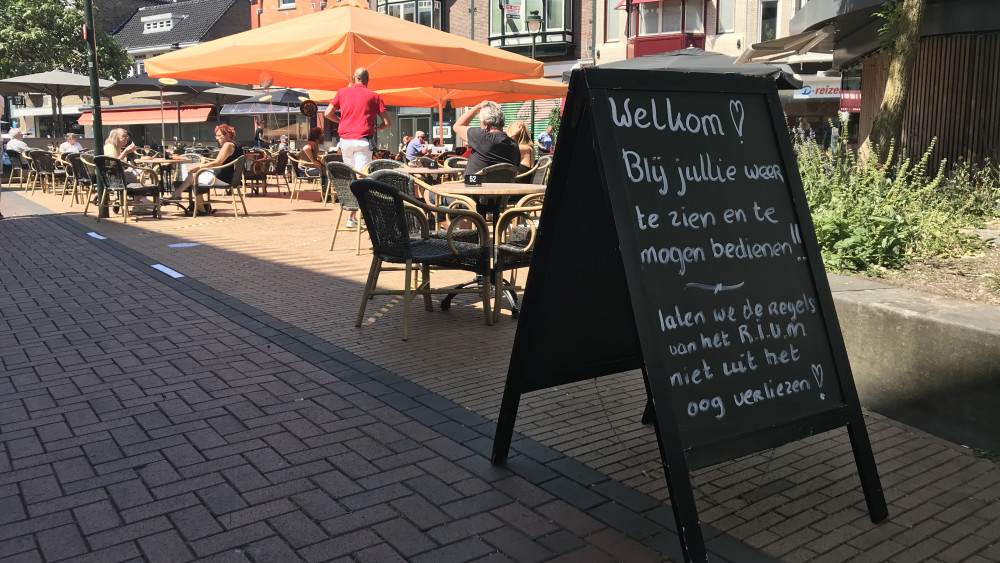 Welkom ♡
Blij jullie weer
te zien en te
mogen bedienen!!
laten we de Regels
van het R.I.U.M
niet uit het
oog verliezen ♡
D-reizen
52